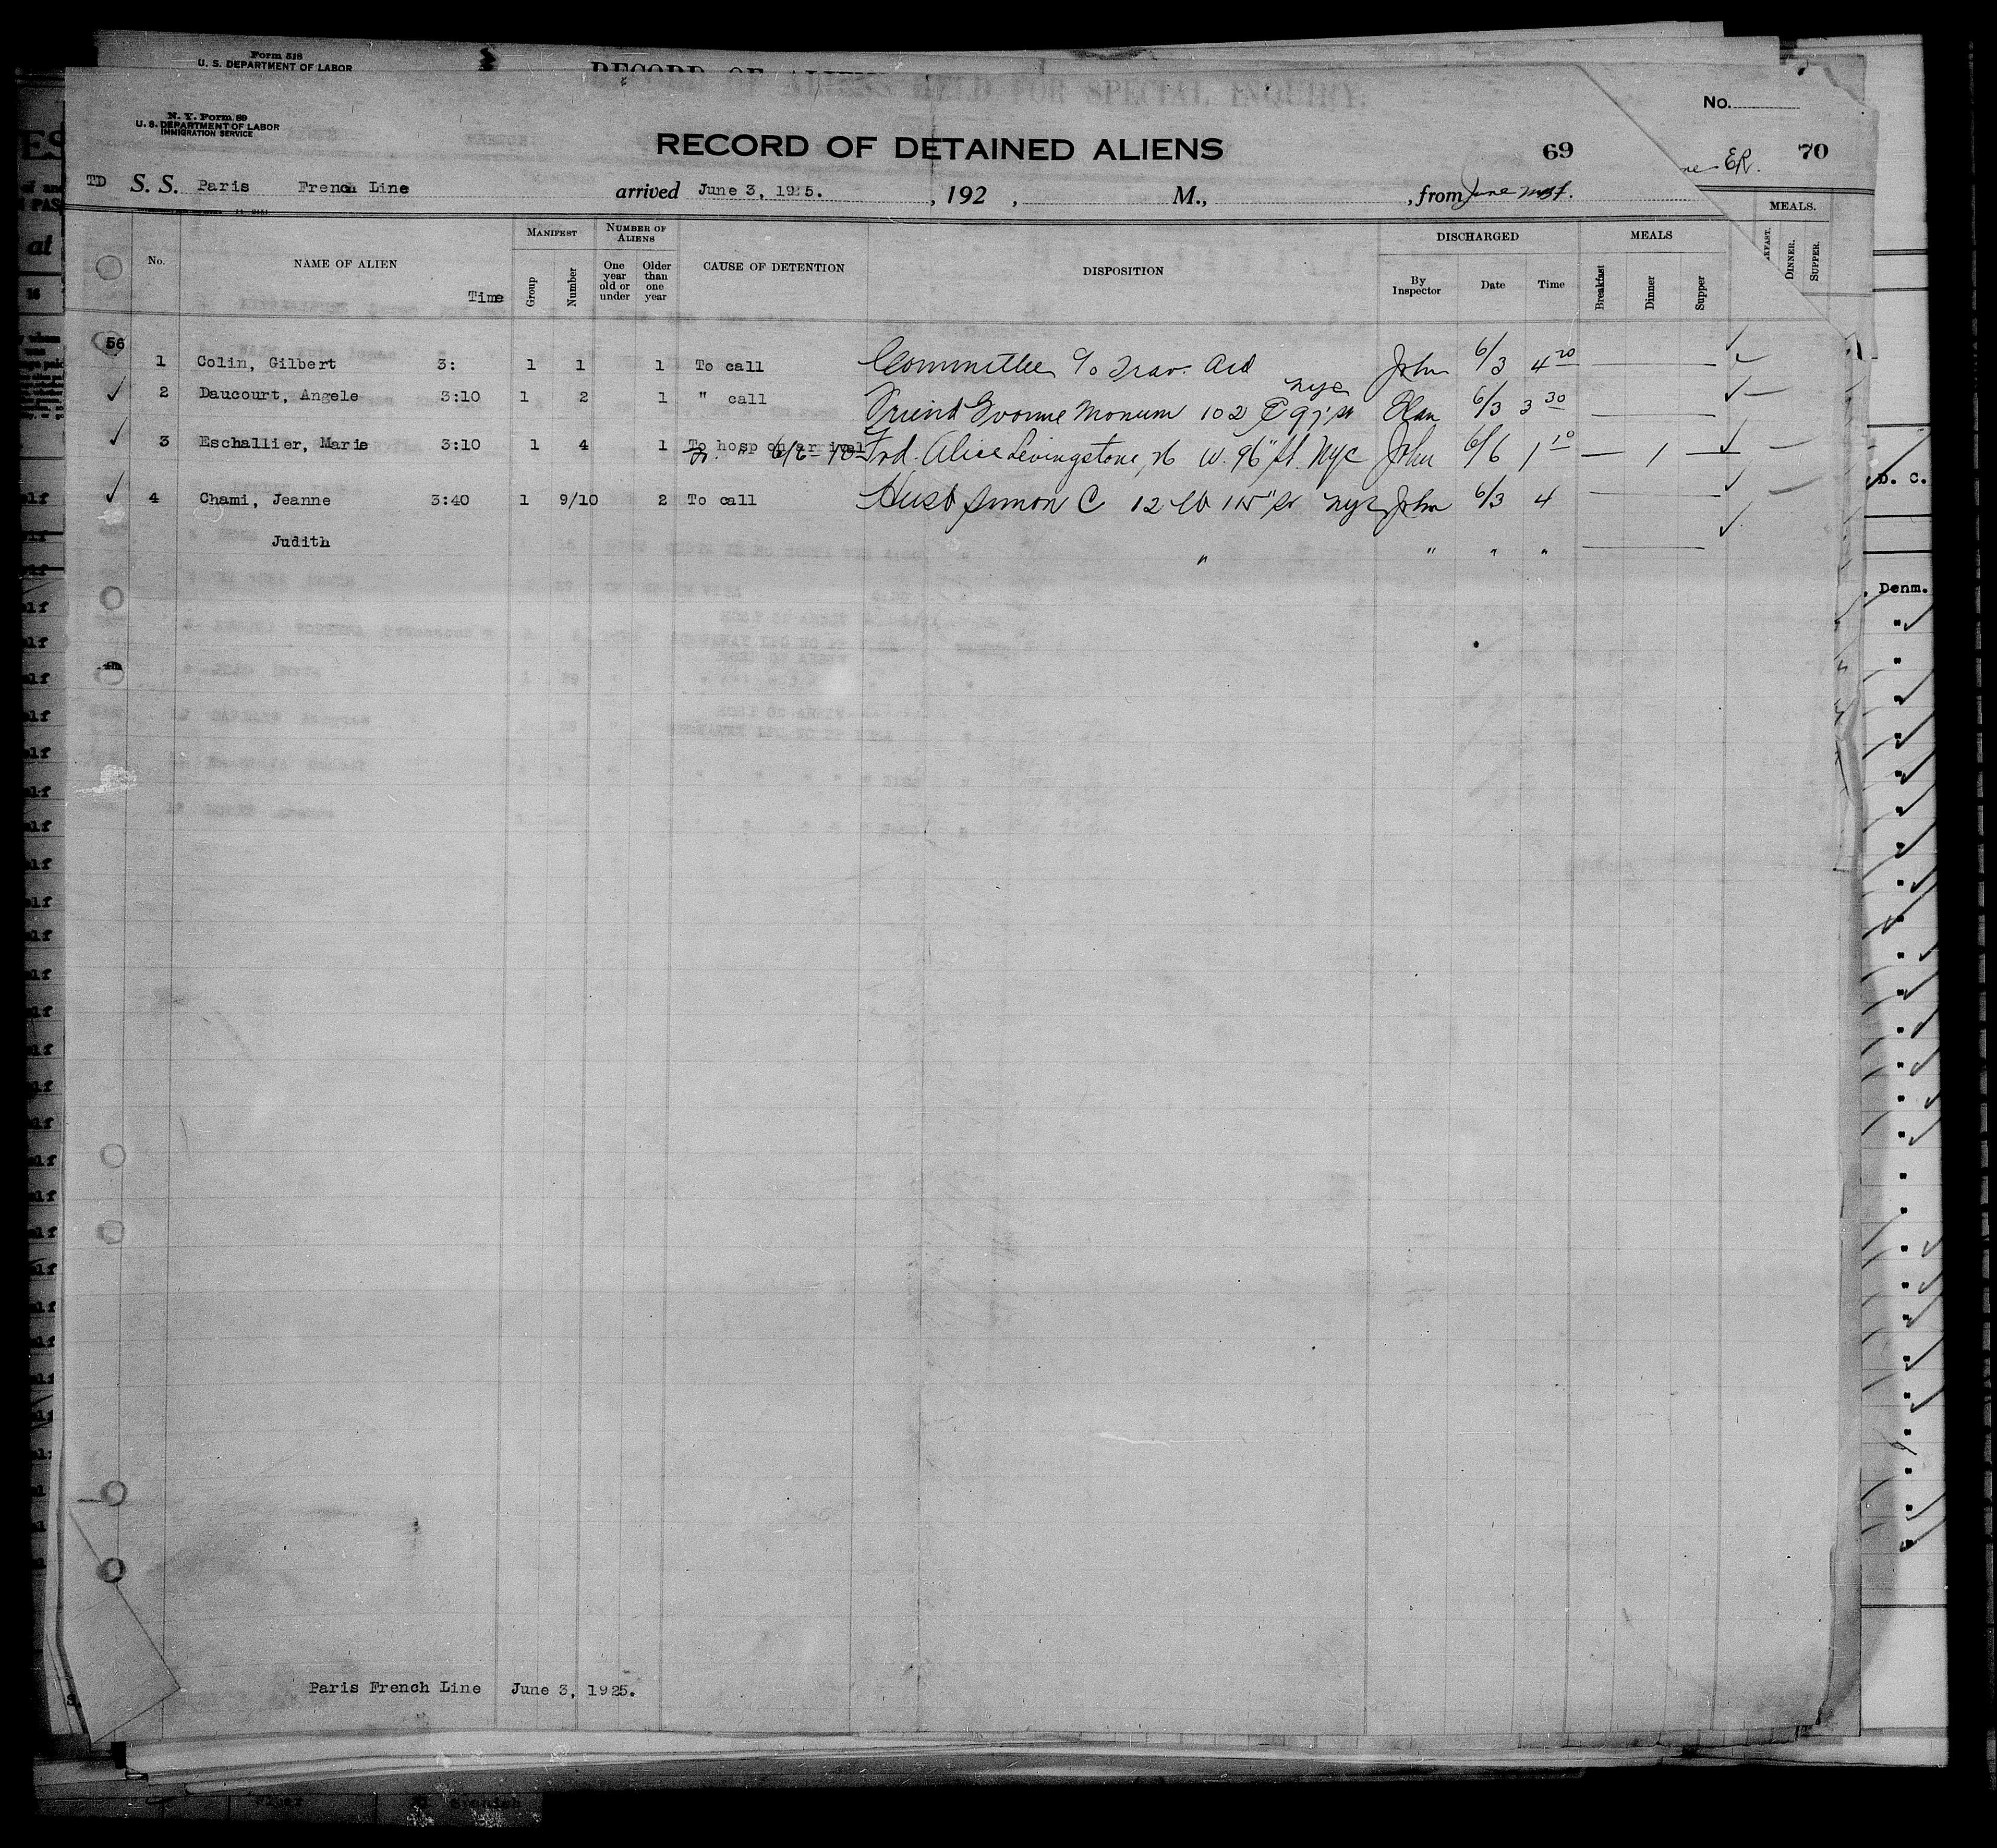 Form 518
U. S. DEPARTMENT OF LABOR
RECORD OF ALIENS HELD FOR SPECIAL INQUIRY.
No.
N. Y. Form 89
U. S. DEPARTMENT OF LABOR
IMMIGRATION SERVICE
RECORD OF DETAINED ALIENS
69
ER. 70
TD S. S. Paris French Line arrived June 3, 1925. , 192 , M., , from June
MEALS.
DINNER. SUPPER.
No. NAME OF ALIEN Time
MANIFEST Group Number
NUMBER OF ALIENS One year old or under Older than one year
CAUSE OF DETENTION
DISPOSITION
DISCHARGED By Inspector Date Time
MEALS Breakfast Dinner Supper
56
1 Colin, Gilbert 3: 1 1 1 To call Committee To Trav. Aid John 6/3 4 20
2 Daucourt, Angele 3:10 1 2 1 " call Friend Yvonne Monum 102 E 97 St NYC 6/3 3 30
3 Eschallier, Marie 3:10 1 4 1 To hosp on arrival Frd. Alice Livingstone, W. 96" St. NYC John 6/6 1 10 — 1 —
4 Chami, Jeanne 3:40 1 9/10 2 To call Husb Simon C 12 W 115" St NYC John 6/3 4
Judith " " " "
D. C.
, Denm.
Paris French Line June 3, 1925.